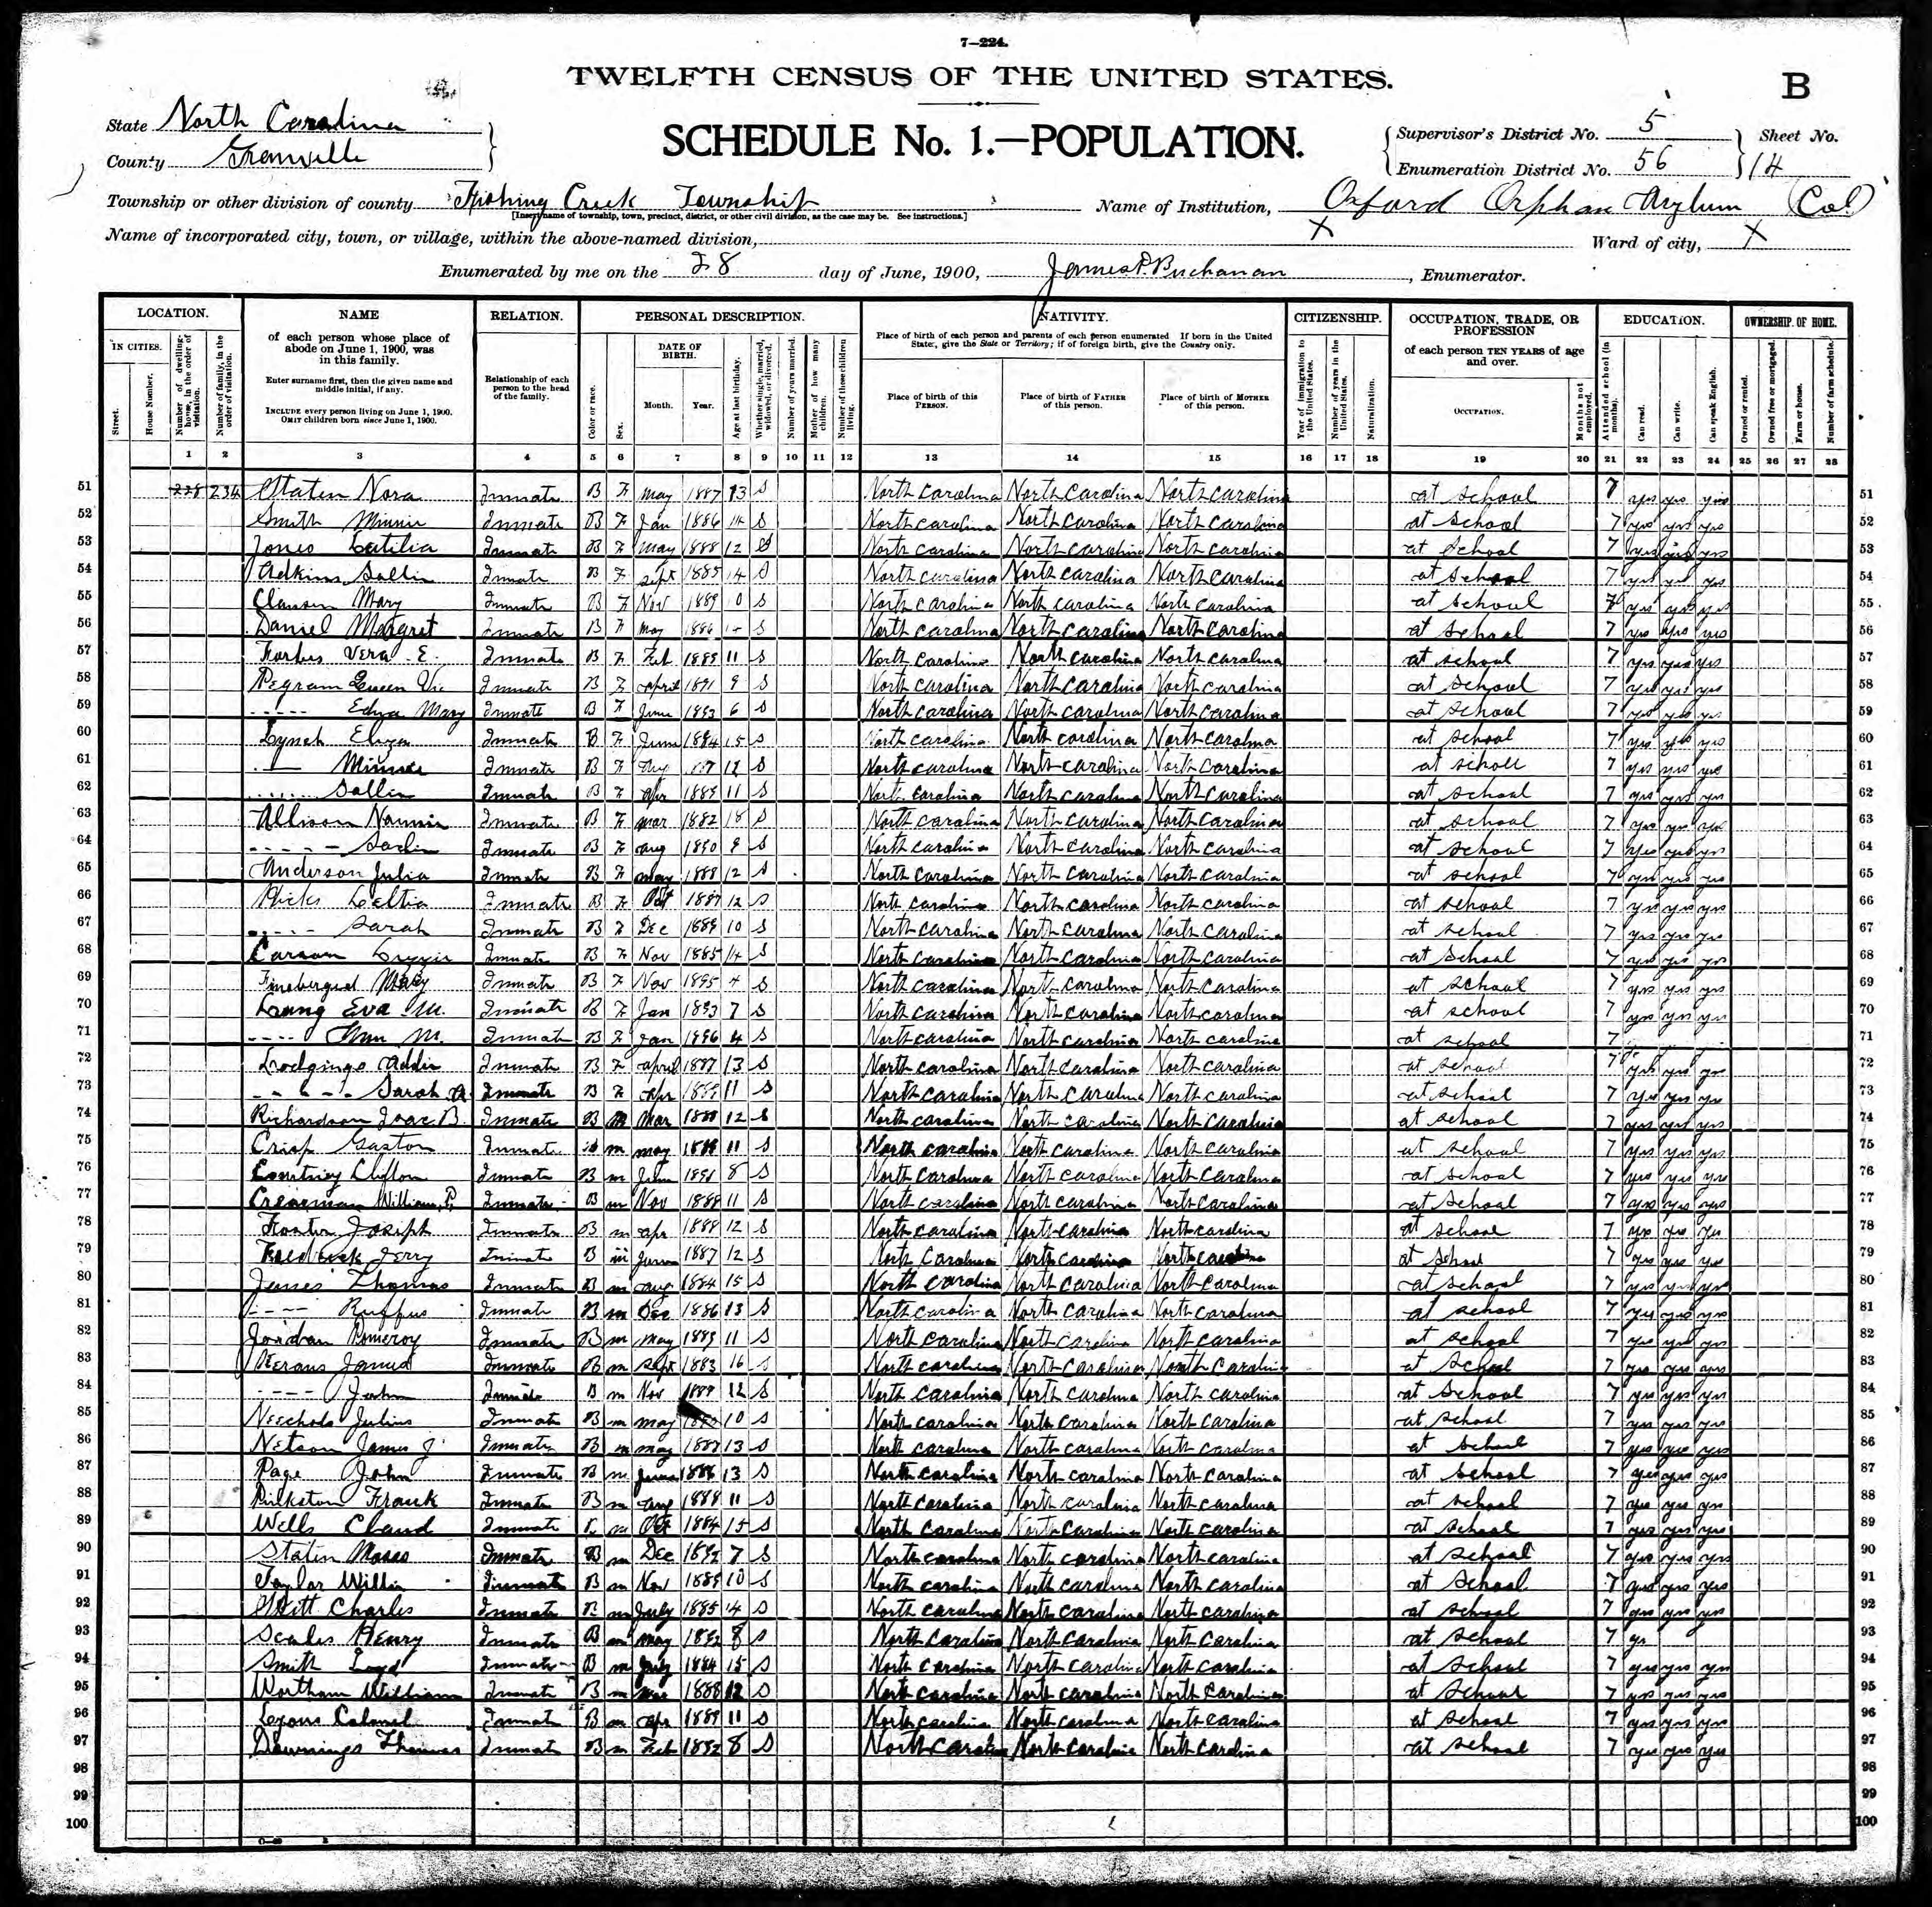 7—224.
TWELFTH CENSUS OF THE UNITED STATES.
B
State North Carolina
County Granville
SCHEDULE No. 1.—POPULATION.
Supervisor's District No. 5
Enumeration District No. 56
Sheet No.
14
Township or other division of county Fishing Creek Township
[Insert name of township, town, precinct, district, or other civil division, as the case may be. See instructions.]
Name of Institution, Oxford Orphan Asylum (Col)
Name of incorporated city, town, or village, within the above-named division, X
Ward of city, X
Enumerated by me on the 28 day of June, 1900, James P. Buchanan, Enumerator.
LOCATION. NAME RELATION. PERSONAL DESCRIPTION. NATIVITY. CITIZENSHIP. OCCUPATION, TRADE, OR PROFESSION EDUCATION. OWNERSHIP OF HOME.
IN CITIES.
Street.
House Number.
Number of dwelling-house, in the order of visitation.
Number of family, in the order of visitation.
of each person whose place of abode on June 1, 1900, was in this family.
Enter surname first, then the given name and middle initial, if any.
INCLUDE every person living on June 1, 1900.
OMIT children born since June 1, 1900.
Relationship of each person to the head of the family.
Color or race.
Sex.
DATE OF BIRTH.
Month. Year.
Age at last birthday.
Whether single, married, widowed, or divorced.
Number of years married.
Mother of how many children.
Number of these children living.
Place of birth of each person and parents of each person enumerated. If born in the United States, give the State or Territory; if of foreign birth, give the Country only.
Place of birth of this PERSON.
Place of birth of FATHER of this person.
Place of birth of MOTHER of this person.
Year of immigration to the United States.
Number of years in the United States.
Naturalization.
of each person TEN YEARS of age and over.
OCCUPATION.
Months not employed.
Attended school (in months).
Can read.
Can write.
Can speak English.
Owned or rented.
Owned free or mortgaged.
Farm or house.
Number of farm schedule.
1 2 3 4 5 6 7 8 9 10 11 12 13 14 15 16 17 18 19 20 21 22 23 24 25 26 27 28
51 228 234 Staten Nora Inmate B F May 1887 13 S North Carolina North Carolina North Carolina at school 7 yes yes yes 51
52 Smith Minnie Inmate B F Jan 1886 14 S North Carolina North Carolina North Carolina at school 7 yes yes yes 52
53 Jones Inmate B F May 1888 12 S North Carolina North Carolina North Carolina at school 7 yes yes yes 53
54 Adkins Sallie Inmate B F Sept 1885 14 S North Carolina North Carolina North Carolina at school 7 yes yes yes 54
55 Mary Inmate B F Nov 1889 10 S North Carolina North Carolina North Carolina at school 7 yes yes yes 55
56 Daniel Margret Inmate B F May 1886 14 S North Carolina North Carolina North Carolina at school 7 yes yes yes 56
57 Forbes Vera E. Inmate B F Feb 1889 11 S North Carolina North Carolina North Carolina at school 7 yes yes yes 57
58 Pegram Queen Vic Inmate B F April 1891 9 S North Carolina North Carolina North Carolina at school 7 yes yes yes 58
59 ----- Edna Mary Inmate B F June 1893 6 S North Carolina North Carolina North Carolina at school 7 yes yes yes 59
60 Lynch Eliza Inmate B F June 1884 15 S North Carolina North Carolina North Carolina at school 7 yes yes yes 60
61 — Minnie Inmate B F Aug 12 S North Carolina North Carolina North Carolina at school 7 yes yes yes 61
62 ----- Sallie Inmate B F Apr 1889 11 S North Carolina North Carolina North Carolina at school 7 yes yes yes 62
63 Allison Nannie Inmate B F Mar 1882 18 S North Carolina North Carolina North Carolina at school 7 yes yes yes 63
64 ----- Inmate B F Aug 1890 9 S North Carolina North Carolina North Carolina at school 7 yes yes yes 64
65 Anderson Julia Inmate B F May 1888 12 S North Carolina North Carolina North Carolina at school 7 yes yes yes 65
66 Hicks Inmate B F Oct 1887 12 S North Carolina North Carolina North Carolina at school 7 yes yes yes 66
67 ----- Sarah Inmate B F Dec 1889 10 S North Carolina North Carolina North Carolina at school 7 yes yes yes 67
68 Carson Inmate B F Nov 1885 14 S North Carolina North Carolina North Carolina at school 7 yes yes yes 68
69 Mary Inmate B F Nov 1895 4 S North Carolina North Carolina North Carolina at school 7 yes yes yes 69
70 Eva M. Inmate B F Jan 1893 7 S North Carolina North Carolina North Carolina at school 7 yes yes yes 70
71 ---- M. Inmate B F Jan 1896 4 S North Carolina North Carolina North Carolina at school 7 71
72 Addie Inmate B F April 1887 13 S North Carolina North Carolina North Carolina at school 7 yes yes yes 72
73 ----- Sarah A. Inmate B F Apr 1889 11 S North Carolina North Carolina North Carolina at school 7 yes yes yes 73
74 Richardson Isac B. Inmate B m Mar 1888 12 S North Carolina North Carolina North Carolina at school 7 yes yes yes 74
75 Crisp Gaston Inmate B m May 1889 11 S North Carolina North Carolina North Carolina at school 7 yes yes yes 75
76 Courtney Clifton Inmate B m 1891 8 S North Carolina North Carolina North Carolina at school 7 yes yes yes 76
77 William P. Inmate B m Nov 1888 11 S North Carolina North Carolina North Carolina at school 7 yes yes yes 77
78 Foster Joseph Inmate B m Apr 1888 12 S North Carolina North Carolina North Carolina at school 7 yes yes yes 78
79 Jerry Inmate B m June 1887 12 S North Carolina North Carolina North Carolina at school 7 yes yes yes 79
80 James Thomas Inmate B m Aug 1884 15 S North Carolina North Carolina North Carolina at school 7 yes yes yes 80
81 ---- Ruffus Inmate B m Dec 1886 13 S North Carolina North Carolina North Carolina at school 7 yes yes yes 81
82 Jordan Pomeroy Inmate B m May 1889 11 S North Carolina North Carolina North Carolina at school 7 yes yes yes 82
83 Kerans James Inmate B m Sept 1883 16 S North Carolina North Carolina North Carolina at school 7 yes yes yes 83
84 ---- John Inmate B m Nov 12 S North Carolina North Carolina North Carolina at school 7 yes yes yes 84
85 Neechols Julius Inmate B m May 10 S North Carolina North Carolina North Carolina at school 7 yes yes yes 85
86 Nelson James J Inmate B m May 1887 13 S North Carolina North Carolina North Carolina at school 7 yes yes yes 86
87 Page John Inmate B m June 1886 13 S North Carolina North Carolina North Carolina at school 7 yes yes yes 87
88 Pilkston Frank Inmate B m Aug 1888 11 S North Carolina North Carolina North Carolina at school 7 yes yes yes 88
89 Wells Claud Inmate m Oct 1884 15 S North Carolina North Carolina North Carolina at school 7 yes yes yes 89
90 Staten Moses Inmate B m Dec 1892 7 S North Carolina North Carolina North Carolina at school 7 yes yes yes 90
91 Taylor Willie Inmate B m Nov 1889 10 S North Carolina North Carolina North Carolina at school 7 yes yes yes 91
92 Charles Inmate B m July 1885 14 S North Carolina North Carolina North Carolina at school 7 yes yes yes 92
93 Scales Henry Inmate B m May 1892 8 S North Carolina North Carolina North Carolina at school 7 93
94 Smith Loyd Inmate B m July 1884 15 S North Carolina North Carolina North Carolina at school 7 yes yes yes 94
95 Wortham William Inmate B m Mar 1888 12 S North Carolina North Carolina North Carolina at school 7 yes yes yes 95
96 Lyons Colonel Inmate B m Apr 1889 11 S North Carolina North Carolina North Carolina at school 7 yes yes yes 96
97 Downings Thomas Inmate B m Feb 1892 8 S North Carolina North Carolina North Carolina at school 7 yes yes yes 97
98 98
99 99
100 100